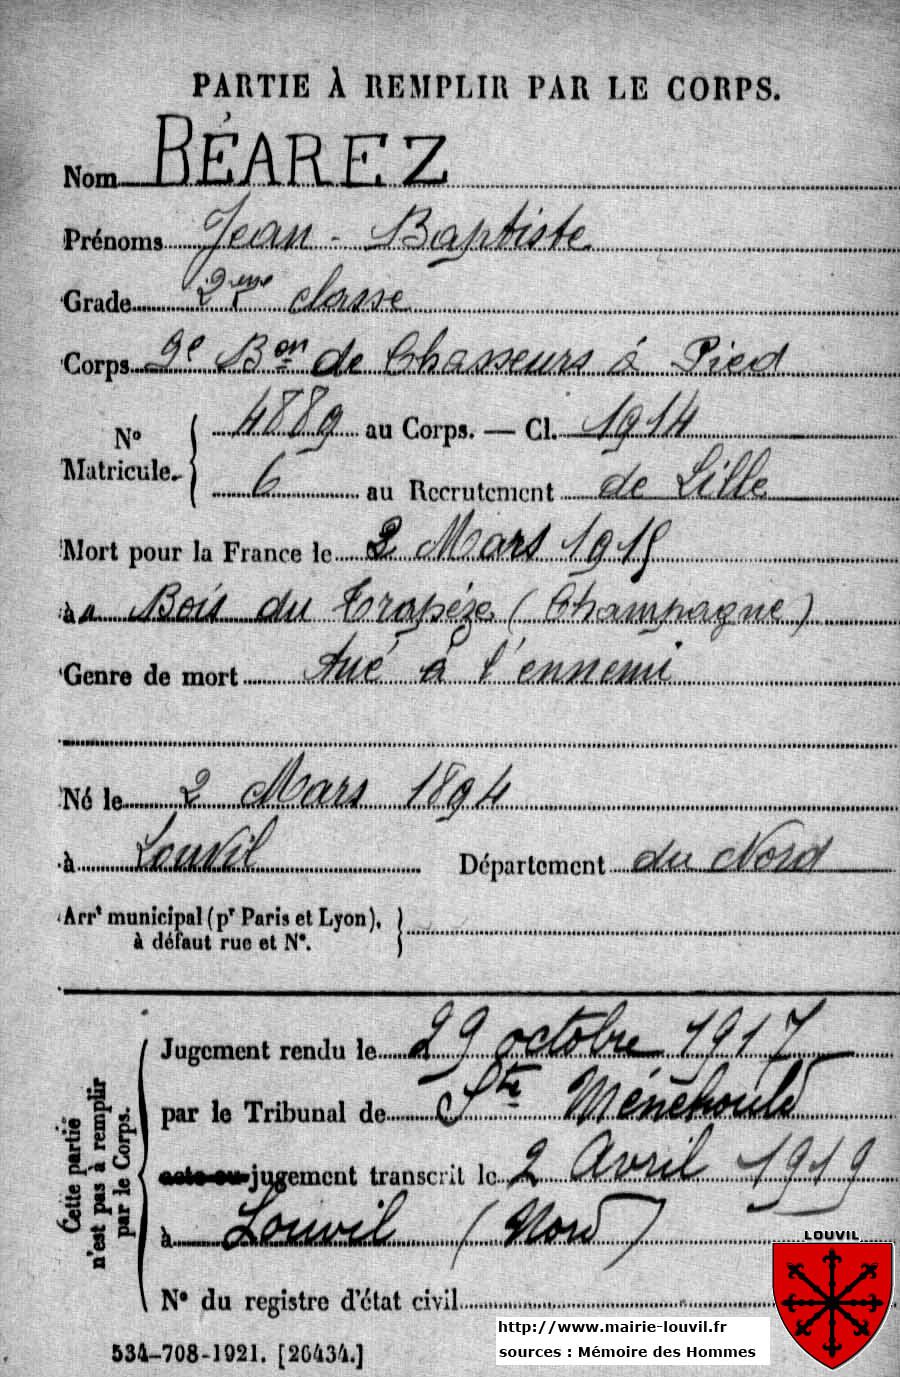 PARTIE À REMPLIR PAR LE CORPS.
Nom BÉAREZ
Prénoms Jean - Baptiste
Grade 2eme classe
Corps 9e Bon de Chasseurs à Pied
No Matricule. 4889 au Corps. — Cl. 1914
6 au Recrutement de Lille
Mort pour la France le 2 Mars 1915
à Bois du Trapéze (Champagne)
Genre de mort Tué à l'ennemi
Né le 2 Mars 1894
à Louvil Département du Nord
Arrt municipal (pr Paris et Lyon),
à défaut rue et No.
Cette partie
n'est pas à remplir
par le Corps.
Jugement rendu le 29 octobre 1917
par le Tribunal de Ste Ménehould
acte ou jugement transcrit le 2 Avril 1919
à Louvil (Nord)
No du registre d'état civil
534-708-1921. [26434.]
LOUVIL
http://www.mairie-louvil.fr
sources : Mémoire des Hommes